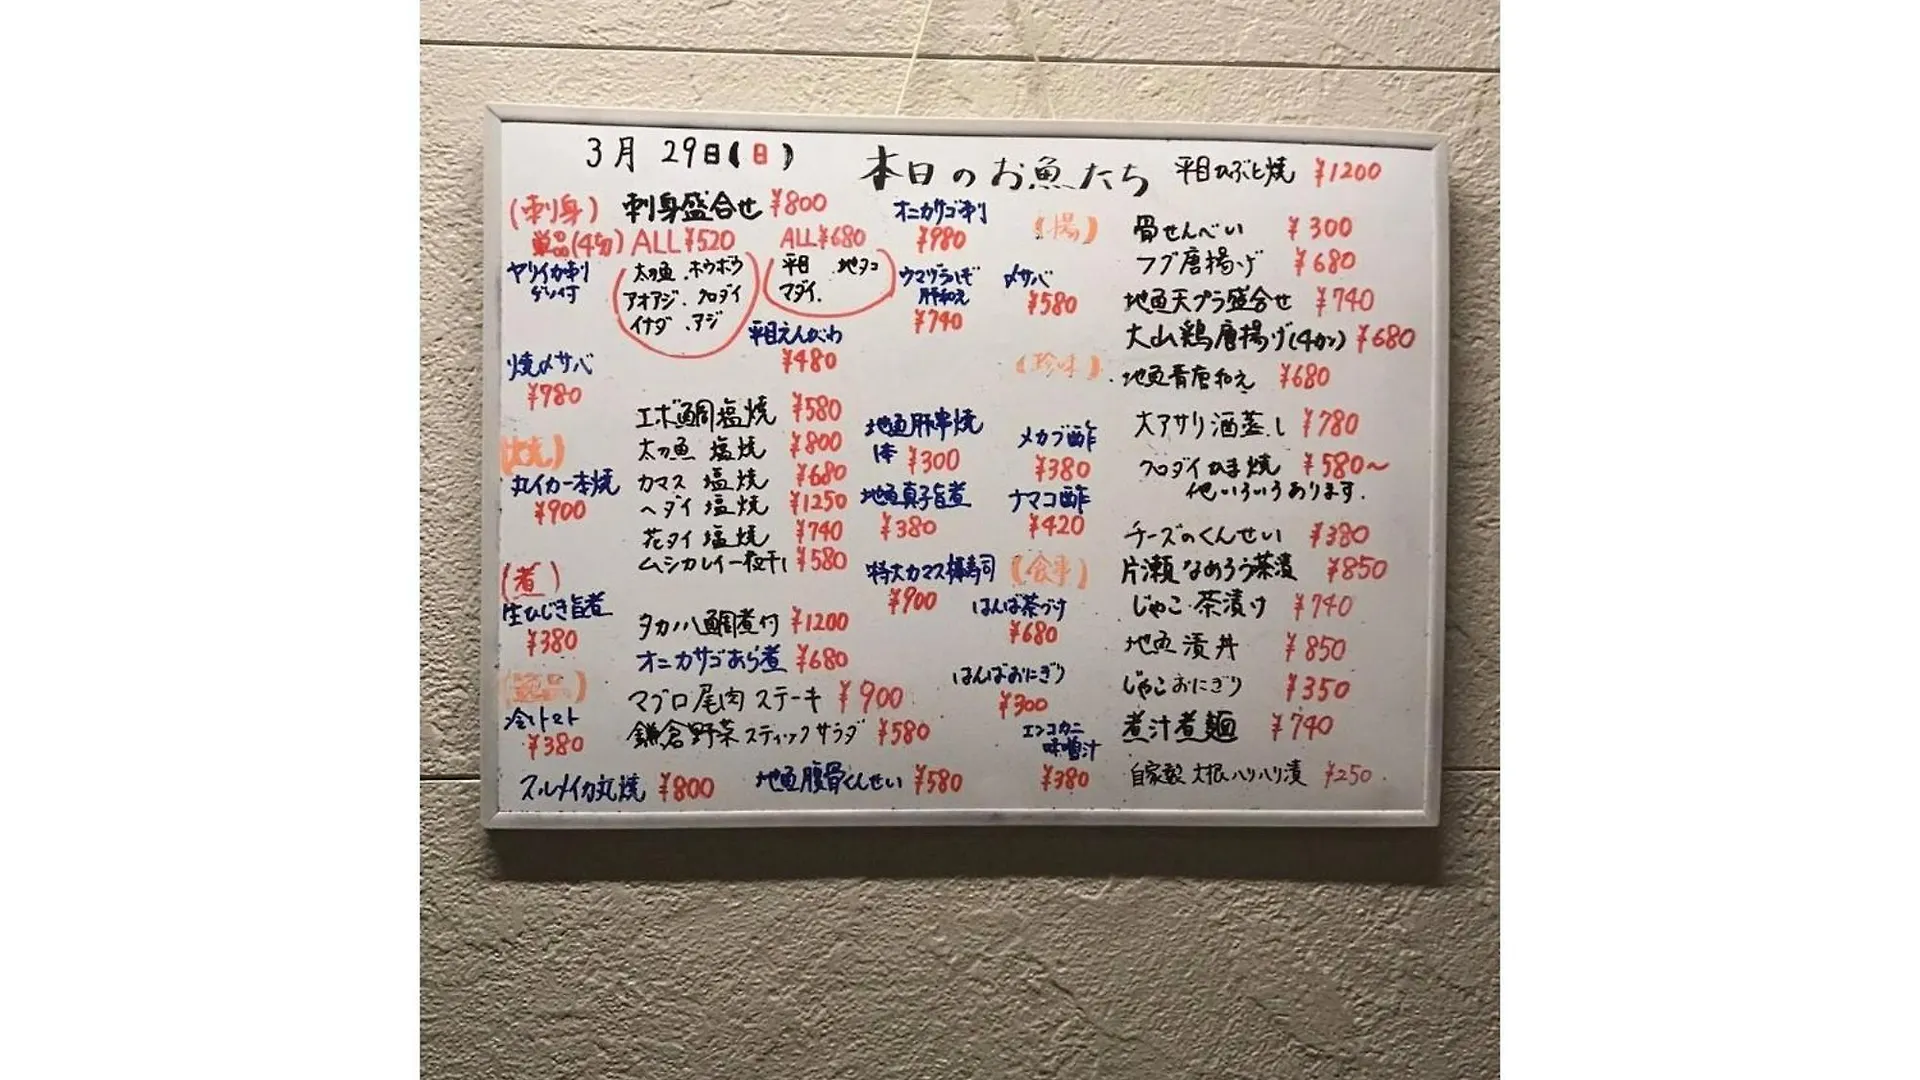 3月 29日(日)
本日のお魚たち
平目かぶと焼 ¥1200
(刺身) 刺身盛合せ ¥800
単品(4切) ALL ¥520
太刀魚、ホウボウ
アオアジ、クロダイ
イナダ、アジ
ALL ¥680
平目、地タコ
マダイ、
オニカサゴ刺
¥980
ヤリイカ刺
ゲソ付
ウマヅラハギ
肝和え
¥740
〆サバ
¥580
平目えんがわ
¥480
焼〆サバ
¥780
(焼)
丸イカ一本焼
¥900
エボ鯛塩焼 ¥580
太刀魚 塩焼 ¥800
カマス 塩焼 ¥680
ヘダイ 塩焼 ¥1250
花タイ 塩焼 ¥740
ムシカレイ一夜干し ¥580
(煮)
生ひじき旨煮
¥380
タカノハ鯛煮付 ¥1200
オニカサゴあら煮 ¥680
冷しトマト
¥380
マグロ尾肉ステーキ ¥900
鎌倉野菜スティックサラダ ¥580
スルメイカ丸焼 ¥800
地魚腹骨くんせい ¥580
(珍味)
地魚肝串焼
1本 ¥300
メカブ酢
¥380
地魚真子旨煮
¥380
ナマコ酢
¥420
特大カマス棒寿司
¥900
(食事)
はんば茶づけ
¥680
はんばおにぎり
¥300
エンコカニ
味噌汁
¥380
(揚)
骨せんべい ¥300
フグ唐揚げ ¥680
地魚天プラ盛合せ ¥740
大山鶏唐揚げ(4カン) ¥680
地魚青唐和え ¥680
大アサリ酒蒸し ¥780
クロダイかま焼 ¥580~
他いろいろあります.
チーズのくんせい ¥380
片瀬なめろう茶漬 ¥850
じゃこ茶漬け ¥740
地魚漬丼 ¥850
じゃこおにぎり ¥350
煮汁煮麺 ¥740
自家製 大根ハリハリ漬 ¥250